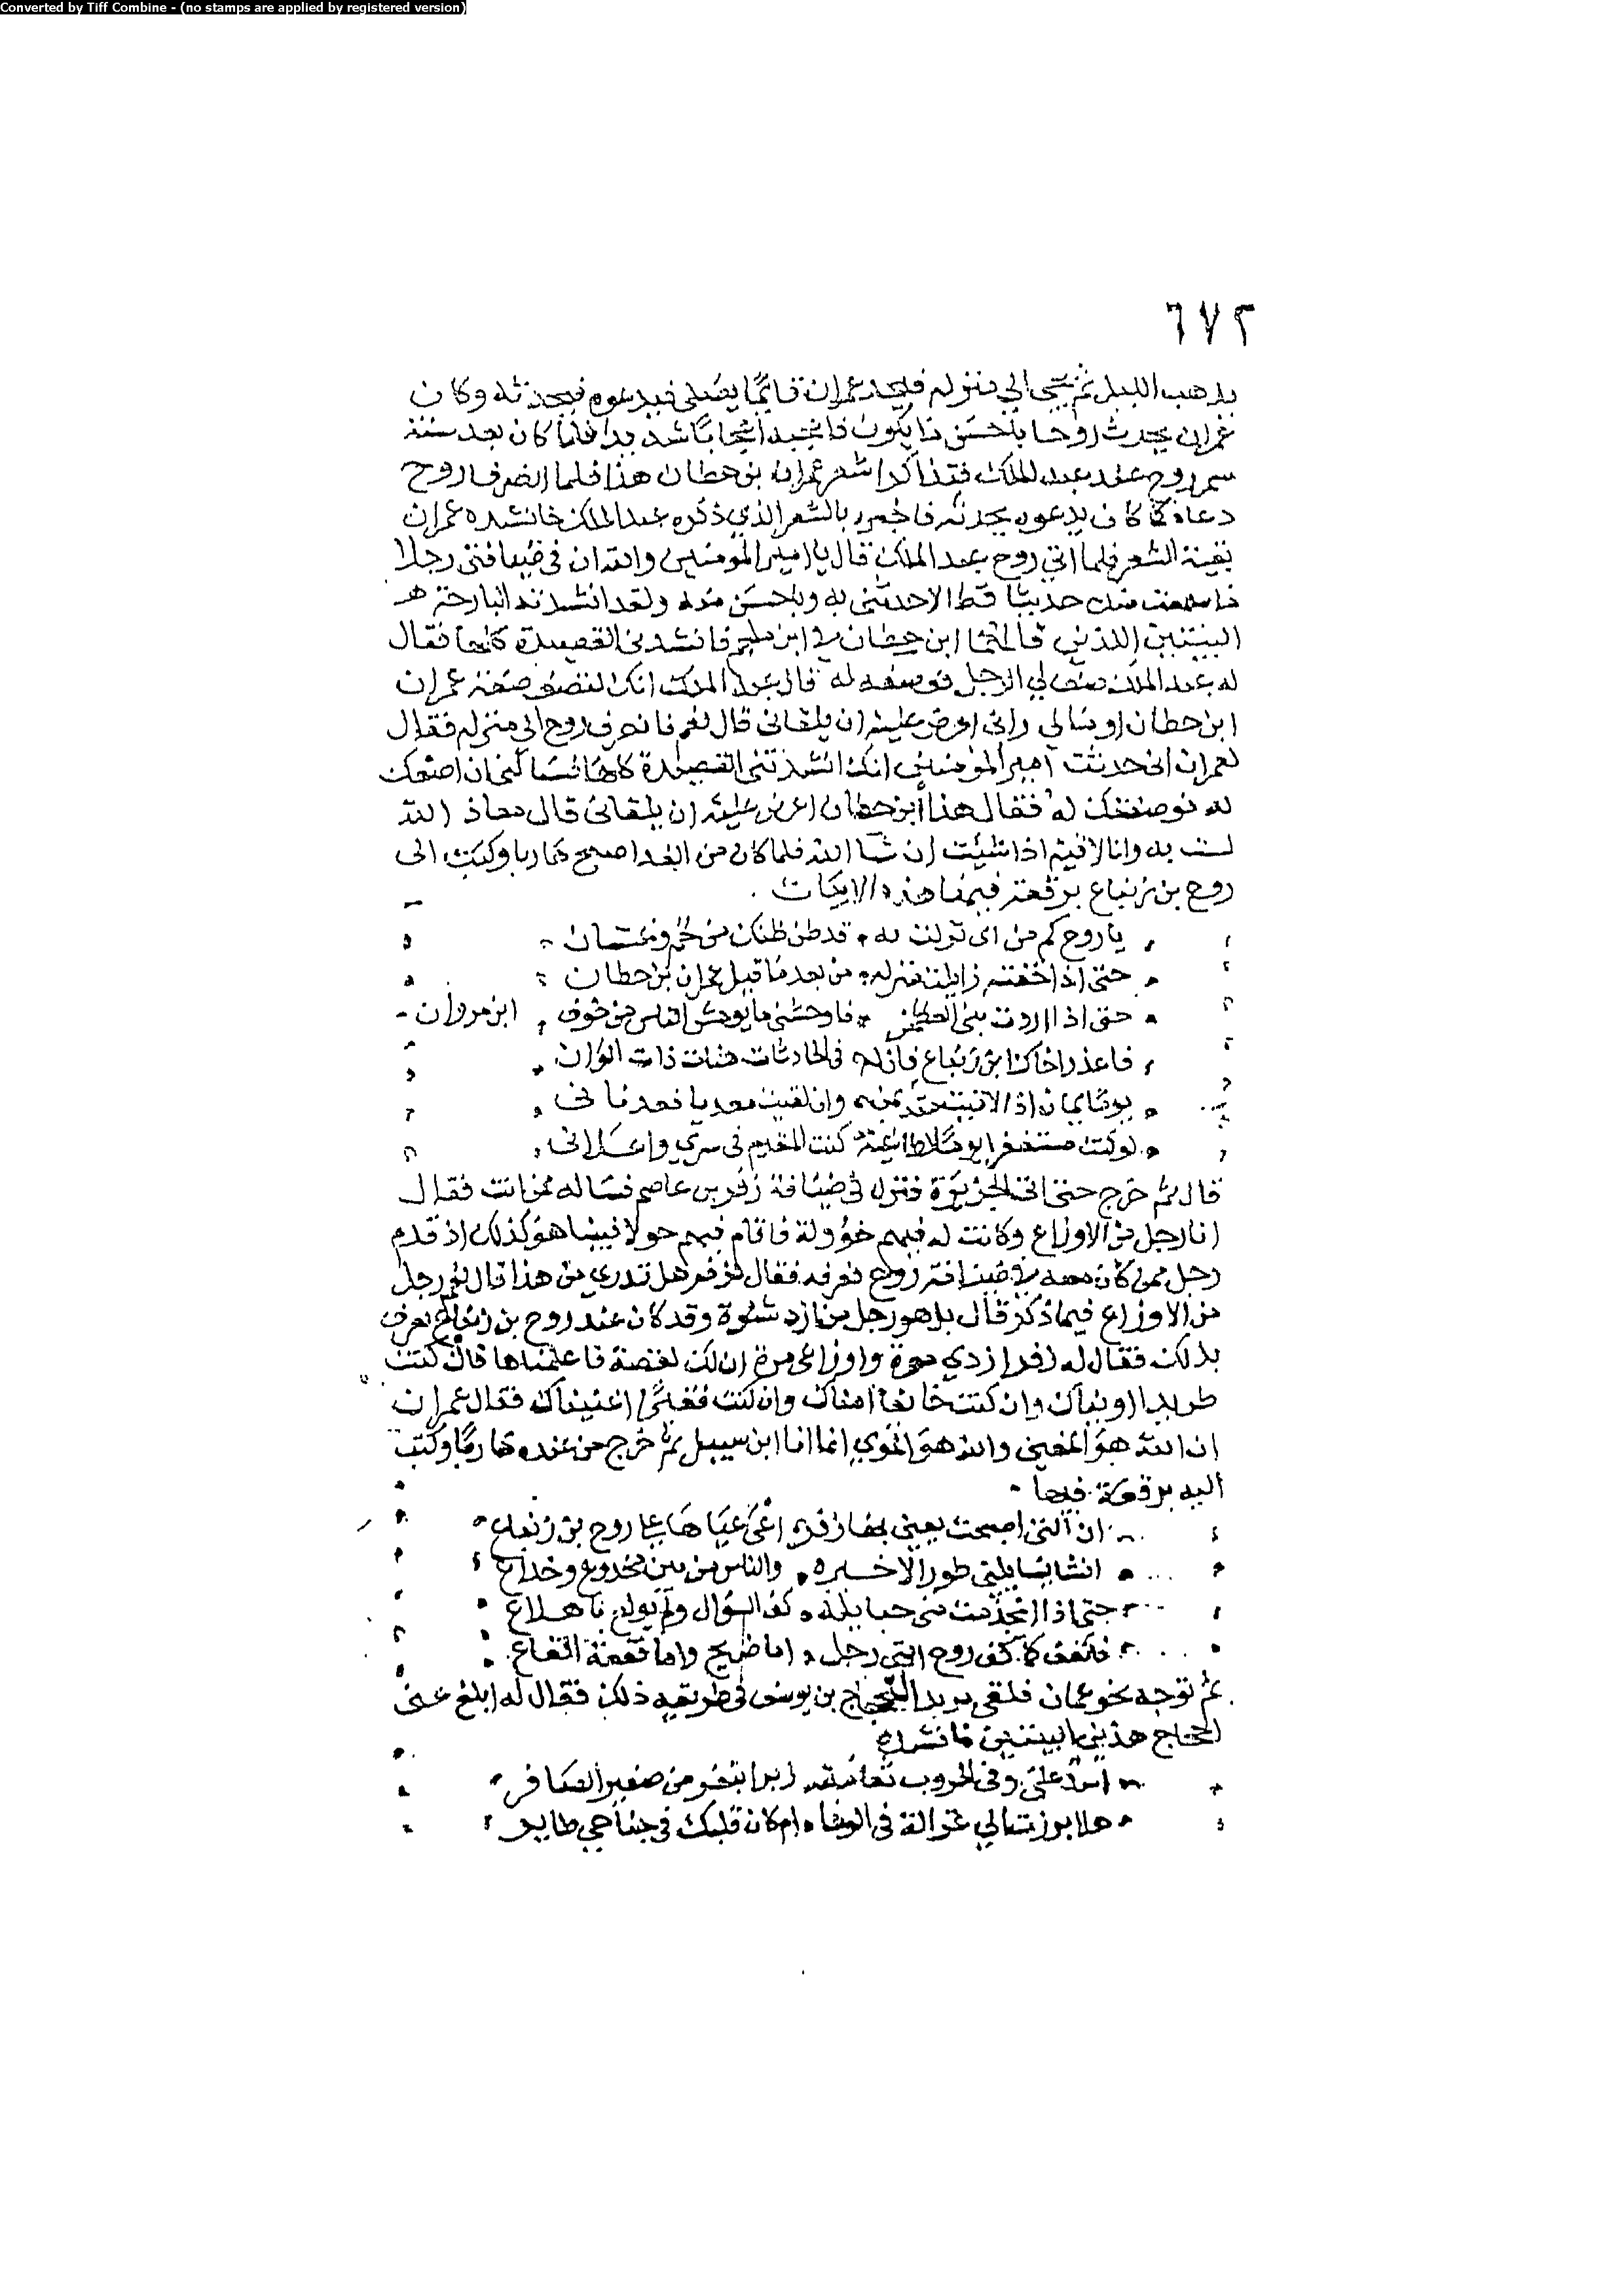 Converted by Tiff Combine - (no stamps are applied by registered version)
٦٧٢
يذهب الليل ثم يجي الي منزله فيجد عمران قائما يصلي فيدعوه فيحدثه وكان
عمران يحدث روحا باحسن ما يكون فاعجبه اعجابا شديدا فلما كان بعد سنة
سمر روح عند عبد الملك فتذاكرا شعر عمران بن حطان هذا فلما انصرف روح
دعاه كما كان يدعوه يحدثه فاخبره بالشعر الذي ذكره عبد الملك فانشده عمران
بقية الشعر فلما اتي روح عبد الملك قال يا امير المومنين والله ان في ضيافتي رجلا
ما سمعت منك حديثا قط الا حدثني به وباحسن منه ولقد انشدته البارحة
البيتين اللذين قالهما ابن حطان في ابن ملجم فانشدني القصيدة كلها فقال
له عبد الملك صف لي الرجل فوصفه له قال عبد الملك انك لتصف صفة عمران
ابن حطان اعرض عليه ان يلقاني قال نعم فانصرف روح الي منزله فقال
لعمران اني حدثت امير المؤمنين انك انشدتني القصيدة كلها فسالني ان اصفك
له فوصفتك له فقال هذا ابن حطان اعرض عليه ان يلقاني قال معاذ الله
لست به وانا لاقيه اذا شئت ان شا الله فلما كان من الغد اصبح هاربا وكتب الى
روح بن زنباع برقعة فيها هذه الابيات
يا روح كم من اى نزلت به قد ظن ظنك من لخم وغسان
حتى اذا خفته زايلت منزله من بعد ما قيل عمران بن حطان
حتى اذا اردت بي العظمى فاوحشني ما يوحش الناس من خوف ابن مروان
فاعذر اخاك ابن زنباع فان له في الحادثات هنات ذات الوان
يوما يمان اذا لاقيت ذا يمن وان لقيت معديا فعدناني
لو كنت مستغفرا يوما لطاغية كنت المقدم في سري واعلاني
قال ثم خرج حتى اتى الجزيرة فنزل في ضيافة زفر بن عاصم فساله ممن انت فقال
انا رجل من الاوزاع وكانت له فيهم خؤولة فاقام فيهم حولا فبينا هو كذلك اذ قدم
رجل ممن كان معه في ضيافة روح فعرفه فقال لزفر هل تدري من هذا قال نعم رجل
من الاوزاع فيما ذكر قال بل هو رجل من ازد شنوة وقد كان عند روح بن زنباع يعرف
بذلك فقال له زفر ازدي مرة واوزاعي مرة ان لك لقصة فاعلمناها فان كنت
طريدا اويناك وان كنت خائفا امناك وان كنت فقيرا اغنيناك فقال عمران
ان الله هو المغني والله هو القوي انما انا ابن سبيل ثم خرج من عنده هاربا وكتب
اليه برقعة فيها
ان التي اصبحت يعيى بها زفر اعي عياها على روح بن زنباع
انشا يسايلني طورا لاخبره والناس من بين مخدوع وخداع
حتى اذا انجذمت مني حبايله كف السؤال ولم يولع باهلاع
فاكفف كما كف روح انني رجل اما صريح واما فقعة القاع
ثم توجه نحو عمان فلقي بريد الحجاج بن يوسف في طريقه ذلك فقال له ابلغ عني
الحجاج هذين البيتين فانشده
اسد علي وفي الحروب نعامة ربدا تنفر من صفير الصافر
هلا برزت الي غزالة في الوغا ام كان قلبك في جناحي طاير